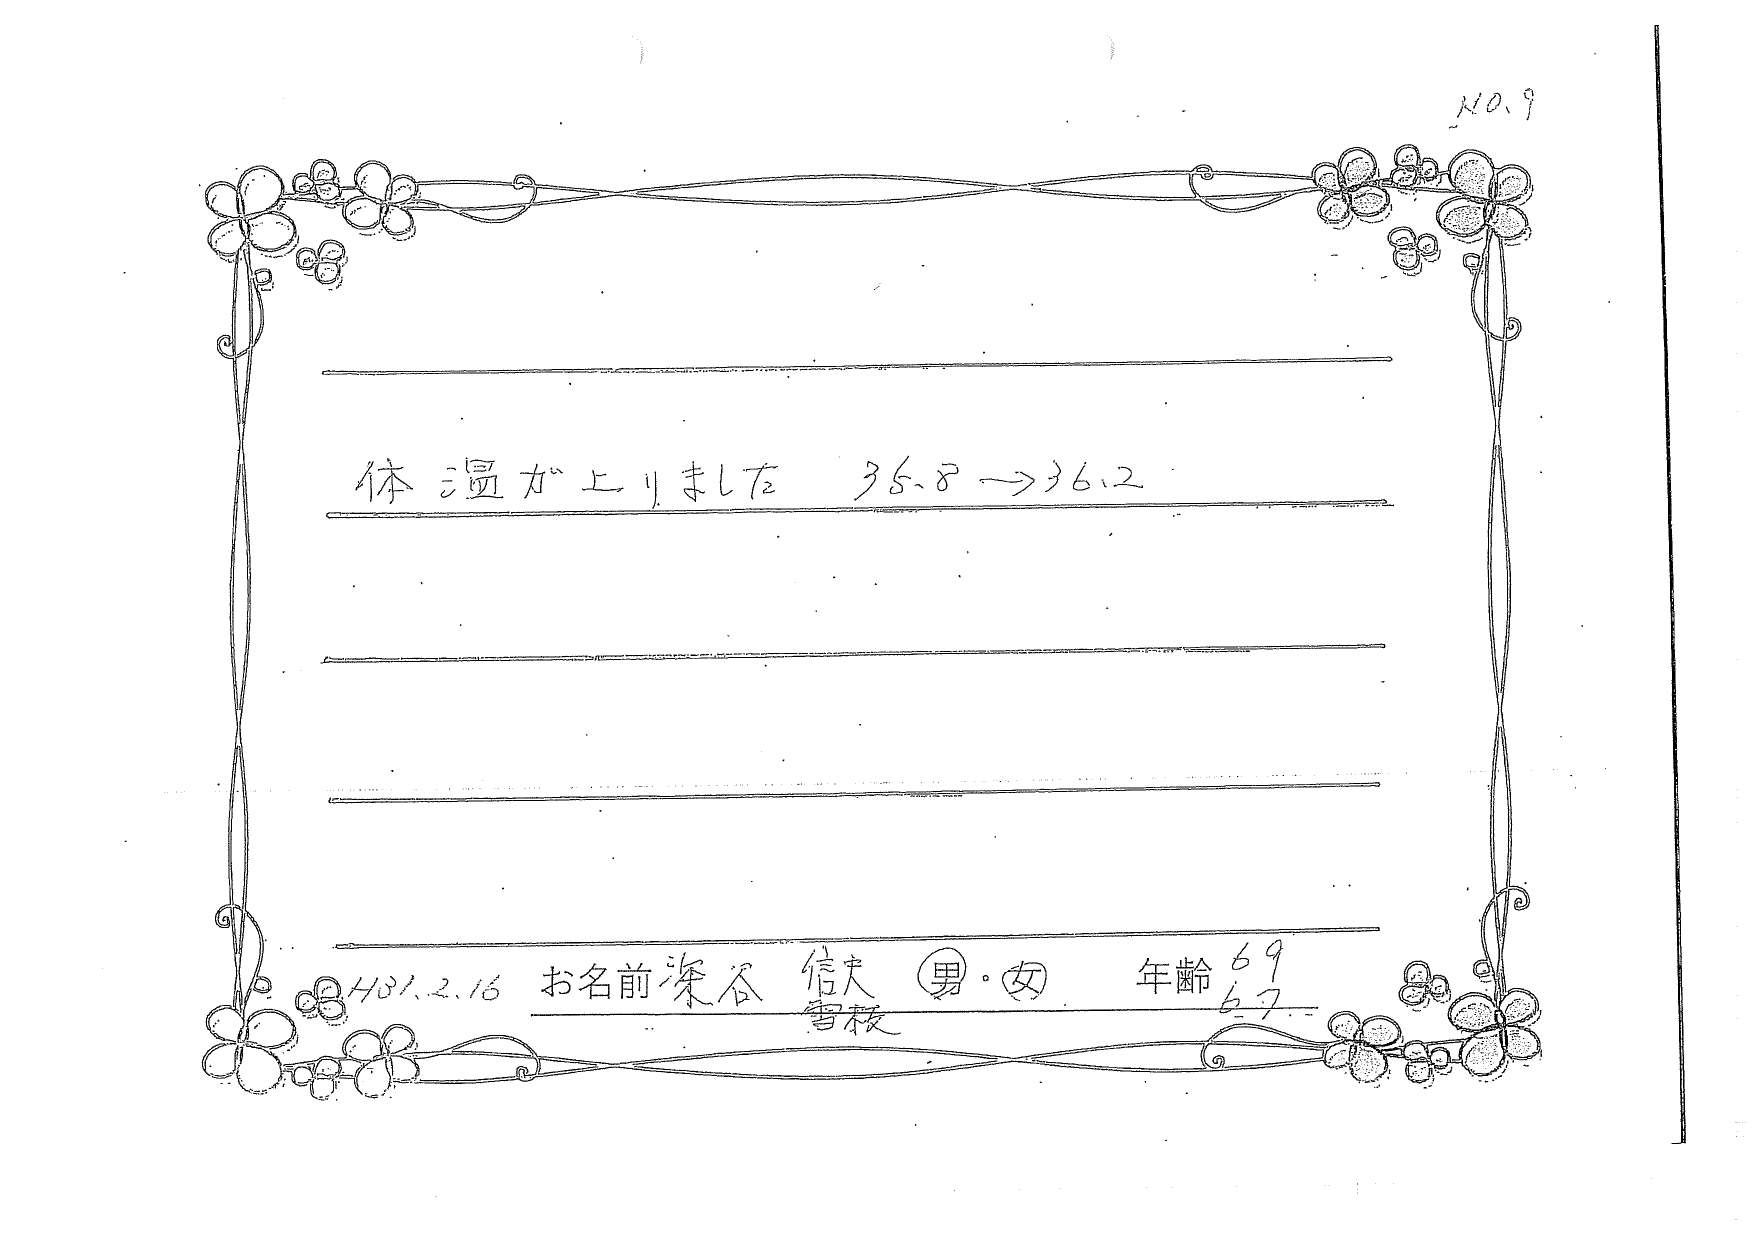 NO.9
体温が上りました 35.8→36.2
H31.2.16 お名前 深谷 信夫 男・女 年齢 69
雪枝 67